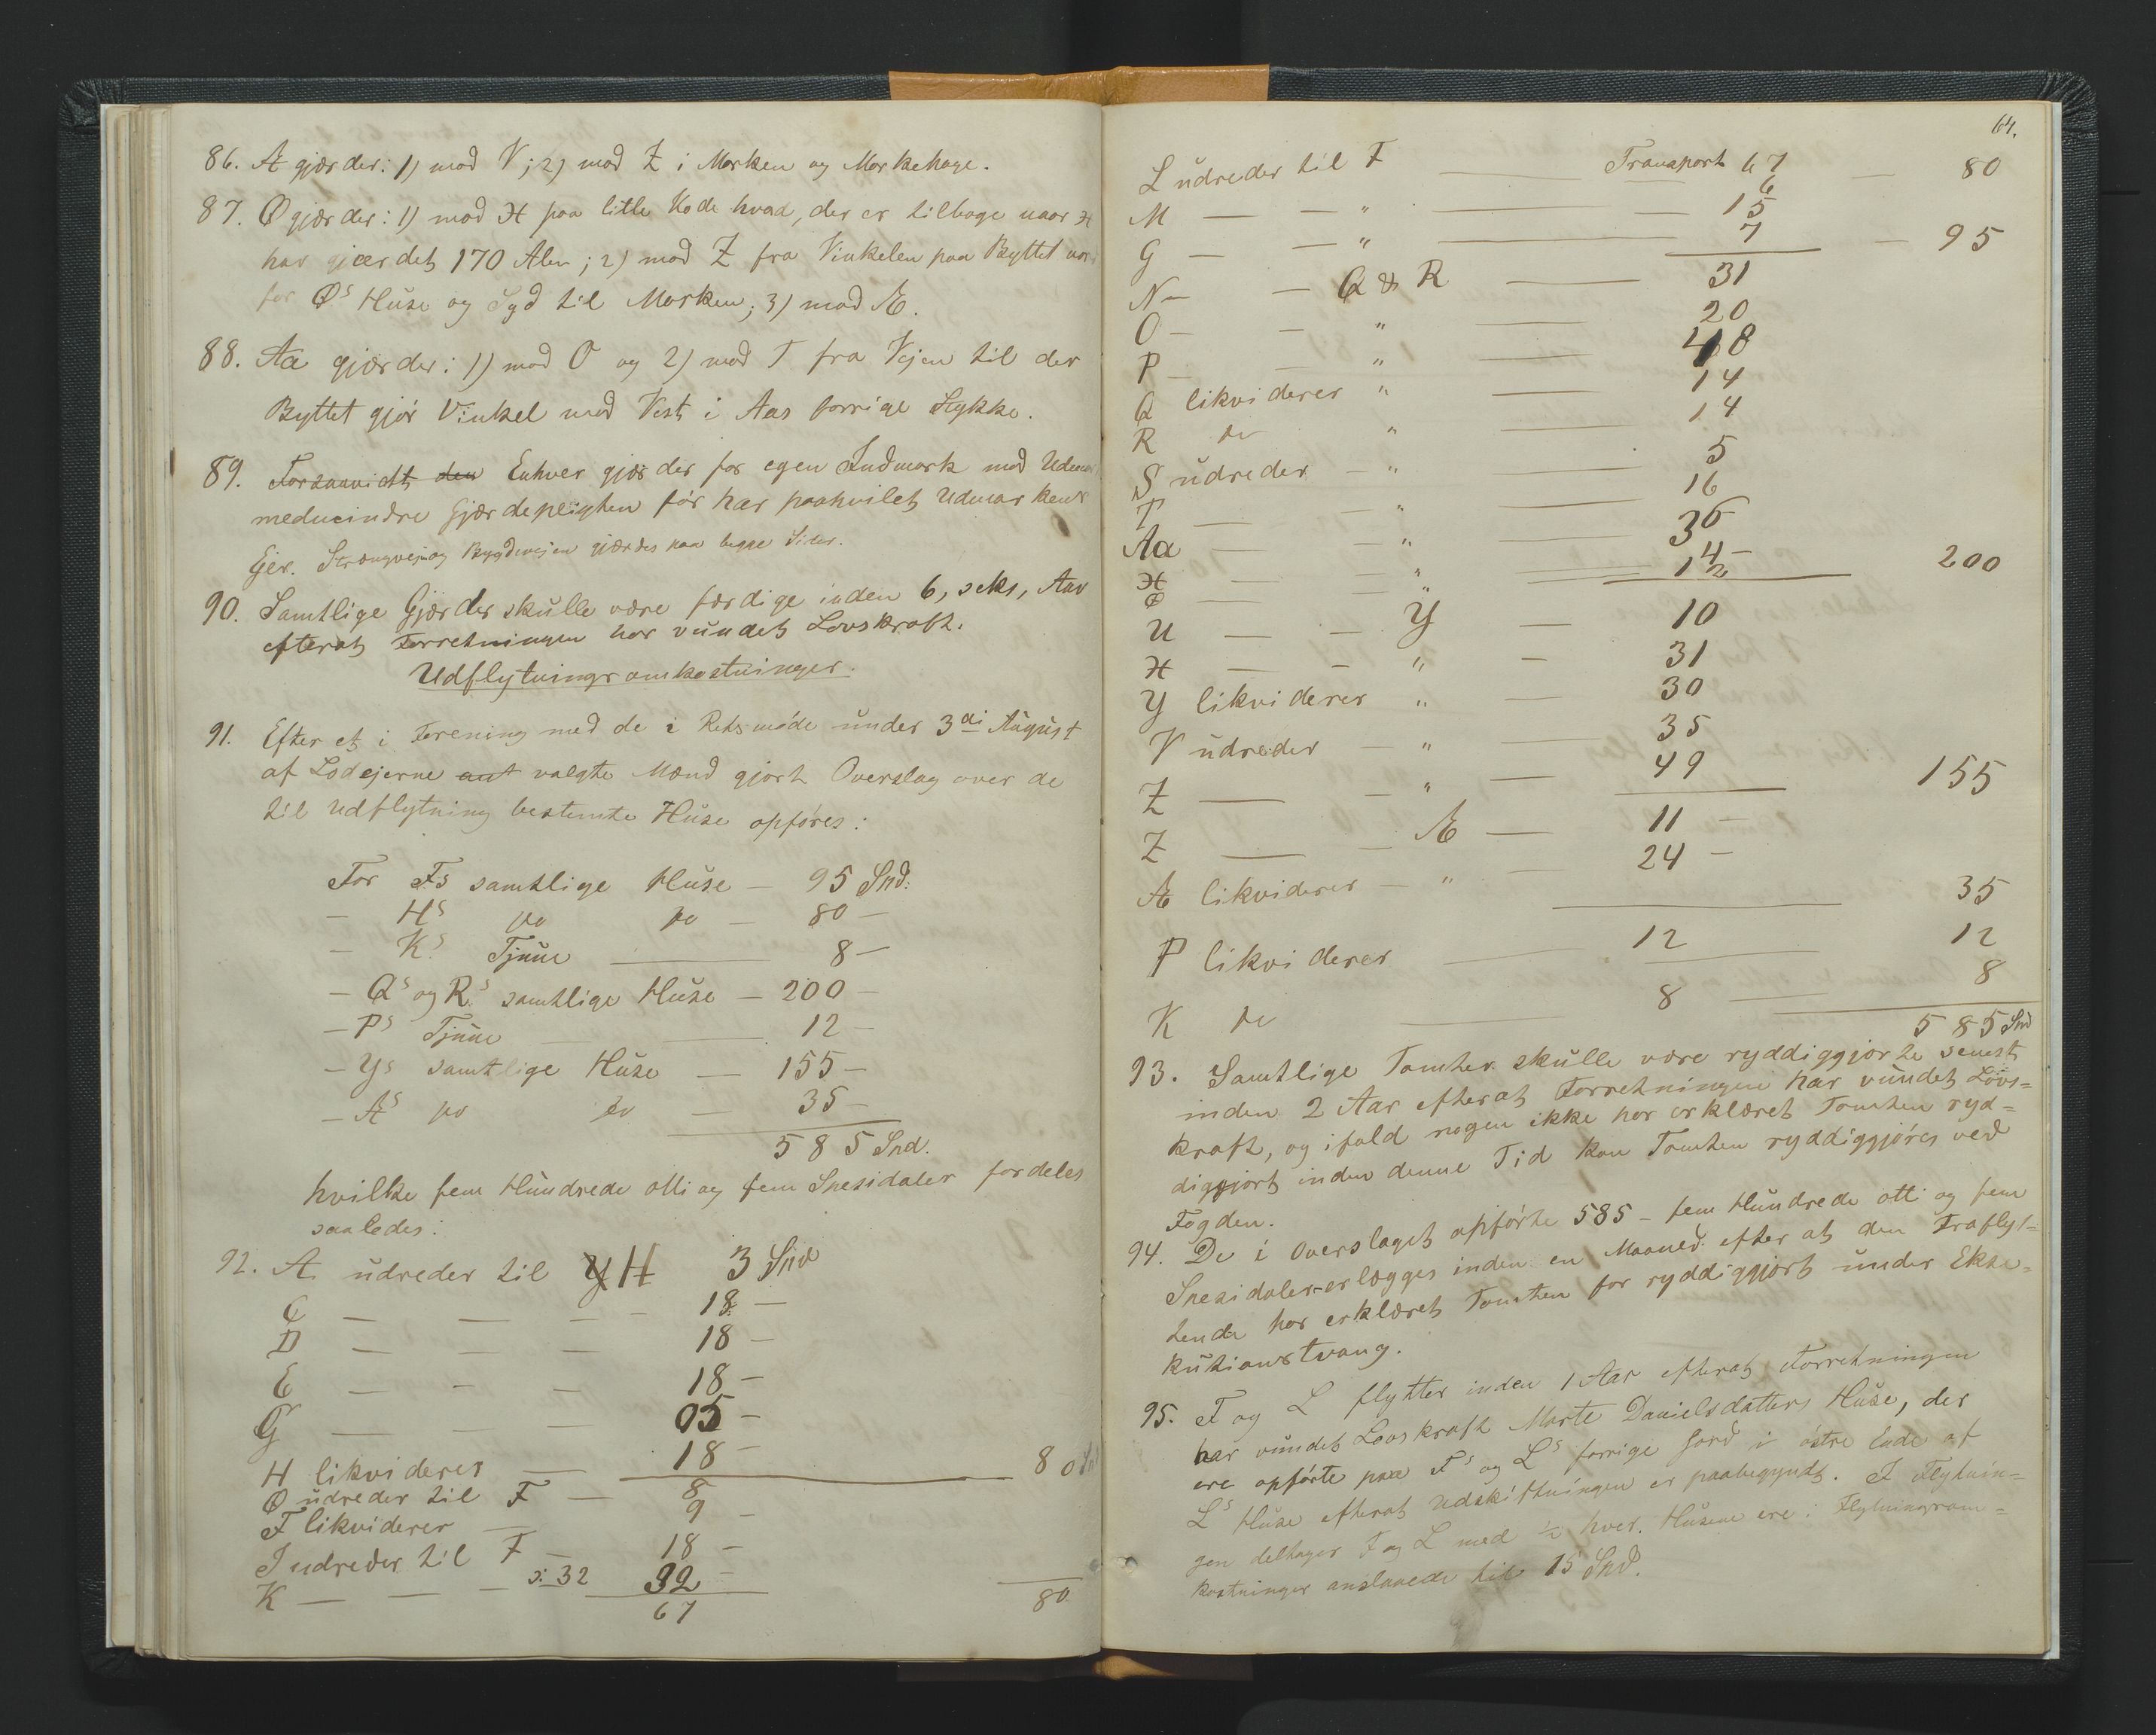 86. Æ gjærder: 1) mod V; 2) mod Z i Marken og Markehage.
87. Ø gjærder: 1) mod Ж paa litle Kode hvad, der er tilbage naar Ж
har gjærdet 170 Alen; 2) mod Z fra Vinkelen paa Byttet nord
for Øs Huse og Syd til Marken; 3) mod Æ.
88. Aa gjærder: 1) mod O og 2) mod T fra Vejen til der
Byttet gjør Vinkel mod Vest i Aas forrige Stykke.
89. Foranvidt den Enhver gjærder for egen Indmark mod Udmark
medmindre Gjærdepligten før har paahvilet Udmarkens
Ejer. Strengvej og Bygdevejen gjærdes paa begge Sider.
90. Samtlige Gjærder skulle være færdige inden 6, seks, Aar
efterat Forretningen har vundet Lovskraft.
Udflytningsomkostninger.
91. Efter et i Forening med de i Retsmøde under 3di August
af Lodejerne ant valgte Mænd gjort Overslag over de
til Udflytning bestemte Huse opføres:
For Fs samtlige Huse — 95 Spd.
— Hs do do — 80 —
— Ks Tjune — 8 —
— Qs og Rs samtlige Huse — 200 —
— Ps Tjune — 12 —
— Ys samtlige Huse — 155 —
— Æs do do — 35 —
585 Spd.
hvilke fem Hundrede otti og fem Spesidaler fordeles
saaledes:
92. A udreder til Y H 3 Spd
C — — — 18 —
D — — — 18 —
E — — — 18 —
G — — — 05 —
H likviderer — 18 — 80 Spd
Ø udreder til F — 8
F likviderer — 9 —
I udreder til F — 18 —
K — — — ɔ: 32 32 —
67 80
64.
L udreder til F — Transport 67 — 80
M — — " — 6
G — — " — 15
7 — 95
N — — Q & R — 31
O — — " — 20
P — — " — 48
Q likviderer " — 14
R do " — 14
S udreder — " — 5
T — — " — 16
Aa — — " — 36
Ж — — " — 14 —
Ø — — " — 2 200
U — — Y — 10
Ж — — " — 31
Y likviderer " — 30
V udreder — " — 35
Z — — " — 49 155
Z — — Æ — 11 —
Æ likviderer — " — 24 —
35
P likviderer — 12 — 12
K do — 8 — 8
585 Spd
93. Samtlige Tomter skulle være ryddiggjorte senest
inden 2 Aar efterat Forretningen har vundet Lovs=
kraft, og ifald nogen ikke har erklæret Tomten ryd=
diggjort inden denne Tid kan Tomten ryddiggjøres ved
Fogden.
94. De i Overslaget opførte 585 - fem Hundrede otti og fem
Spesidaler erlægges inden en Maaned efter at den Fraflyt=
tende har erklæret Tomten for ryddiggjort under Ekse=
kutionstvang.
95. F og L flytter inden 1 Aar efterat Forretningen
har vundet Lovskraft Marte Danielsdatters Huse, der
ere opførte paa Fs og Ls forrige Jord i østre Ende af
Ls Huse efterat Udskiftningen er paabegyndt. I Flytnin=
gen deltager F og L med ½ hver. Husene ere i Flytningsom=
kostninger anslaaede til 15 Spd.